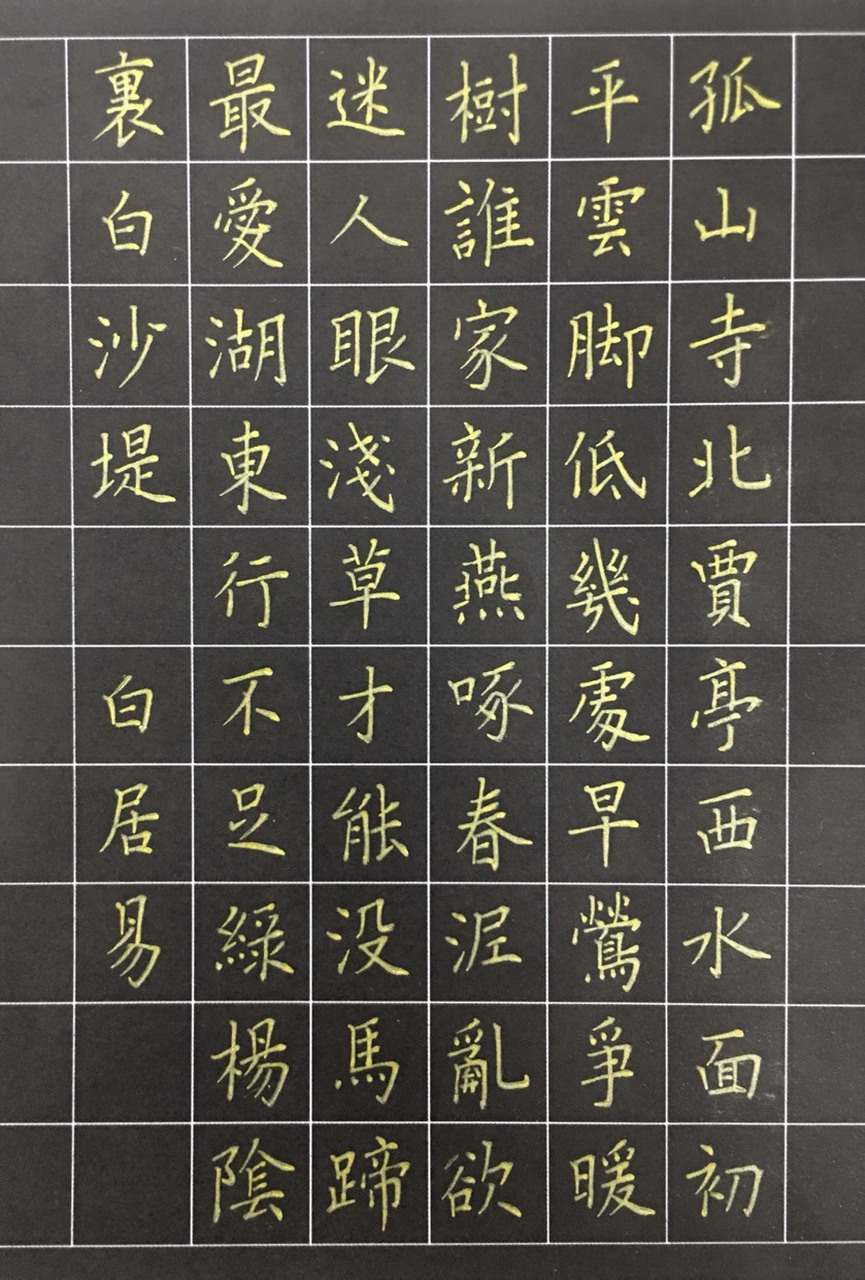 孤山寺北賈亭西水面初
平雲脚低幾處早鶯爭暖
樹誰家新燕啄春泥亂欲
迷人眼淺草才能没馬蹄
最愛湖東行不足綠楊陰
裏白沙堤　白居易